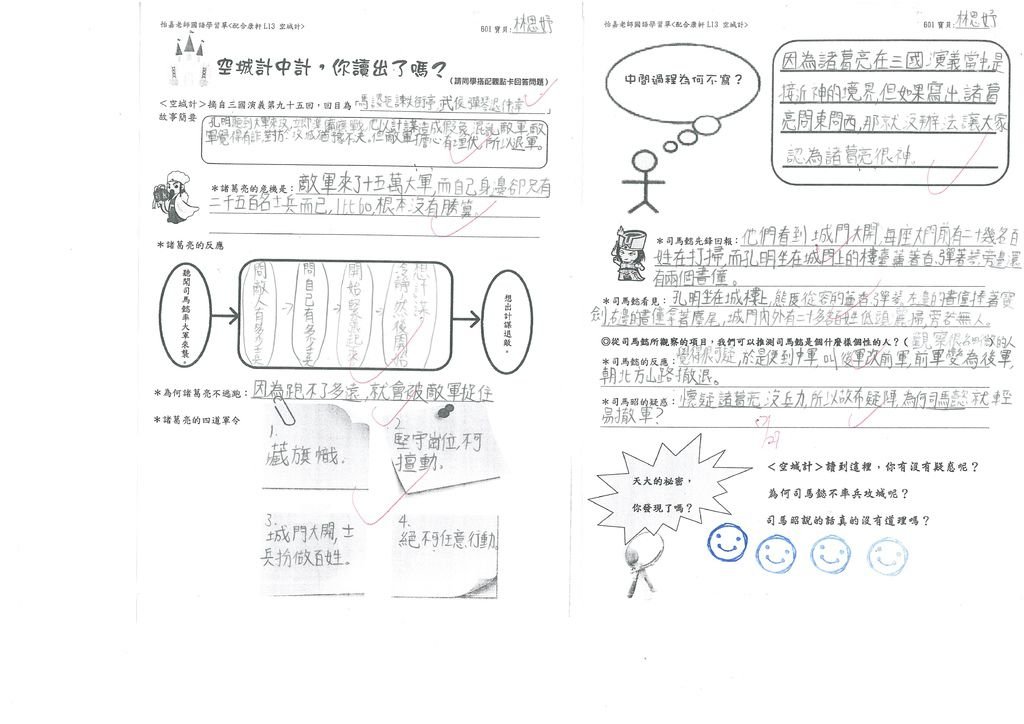 怡嘉老師國語學習單<配合康軒 L13 空城計>
601 寶貝: 林思妤
空城計中計，你讀出了嗎？
(請同學搭配觀點卡回答問題)
＜空城計＞摘自三國演義第九十五回，回目為 馬謖拒諫失街亭,武侯彈琴退仲達
故事簡要
孔明聽到大軍來攻,立即準備應戰,他以計謀造成假象,混亂敵軍,敵
軍覺得有詐,對於攻城猶豫不決,但敵軍擔心有埋伏,所以退軍。
＊諸葛亮的危機是: 敵軍來了十五萬大軍,而自己身邊卻只有
二千五百名士兵而已,1比60,根本沒有勝算。
＊諸葛亮的反應
聽聞司馬懿率大軍來襲。
問敵人有多少士兵
問自己有多少士兵
開始緊張起來
冷靜,然後開始
想計謀
想出計謀退敵。
＊為何諸葛亮不逃跑: 因為跑不了多遠,就會被敵軍捉住
＊諸葛亮的四道軍令
1.
藏旗幟.
2
堅守崗位,不可
擅動.
3.
城門大開,士
兵扮做百姓。
4.
絕不可任意行動.
怡嘉老師國語學習單<配合康軒 L13 空城計>
601 寶貝: 林思妤
中間過程為何不寫？
因為諸葛亮在三國演義當中是
接近神的境界,但如果寫出諸葛
亮問東問西,那就沒辦法讓大家
認為諸葛亮很神.
＊司馬懿先鋒回報: 他們看到城門大開,每座大門前有二十幾名百
姓在打掃,而孔明坐在城門上的樓臺蓋著香,彈著琴,旁邊還
有兩個書僮。
＊司馬懿看見: 孔明坐在城樓上,態度從容的蓋香,彈琴,左邊的書僮捧著寶
劍,右邊的書僮拿著麈尾,城門內外有二十多名百姓低頭灑掃,旁若無人。
◎從司馬懿所觀察的項目，我們可以推測司馬懿是個什麼樣個性的人？( 觀察很細微的人
＊司馬懿的反應: 覺得很可疑,於是便到中軍,叫後軍改前軍,前軍變為後軍,
朝北方山路撤退。
＊司馬昭的疑惑: 懷疑諸葛亮沒兵力,所以故布疑陣,為何司馬懿就輕
易撤軍?
天大的秘密，
你發現了嗎？
＜空城計＞讀到這裡，你有沒有疑惑呢？
為何司馬懿不率兵攻城呢？
司馬昭說的話真的沒有道理嗎？